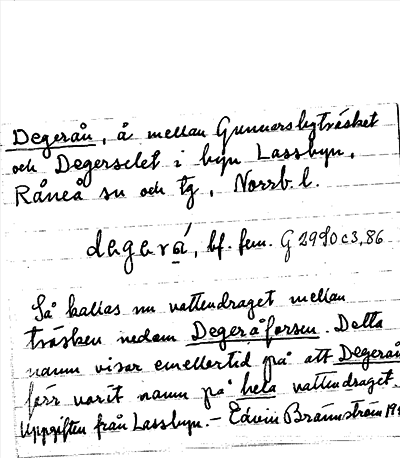 Degerån, å mellan Gunnarsbyträsket
och Degerselet i byn Lassbyn,
Råneå sn och tg, Norrb. l.
degerǻ, bf. fem. G 2990 c3,86
Så kallas nu vattendraget mellan
träsken nedom Degeråforsen. Detta
namn visar emellertid på att Degerån
förr varit namn på hela vattendraget.
Uppgiften från Lassbyn. - Edvin Brännström 19